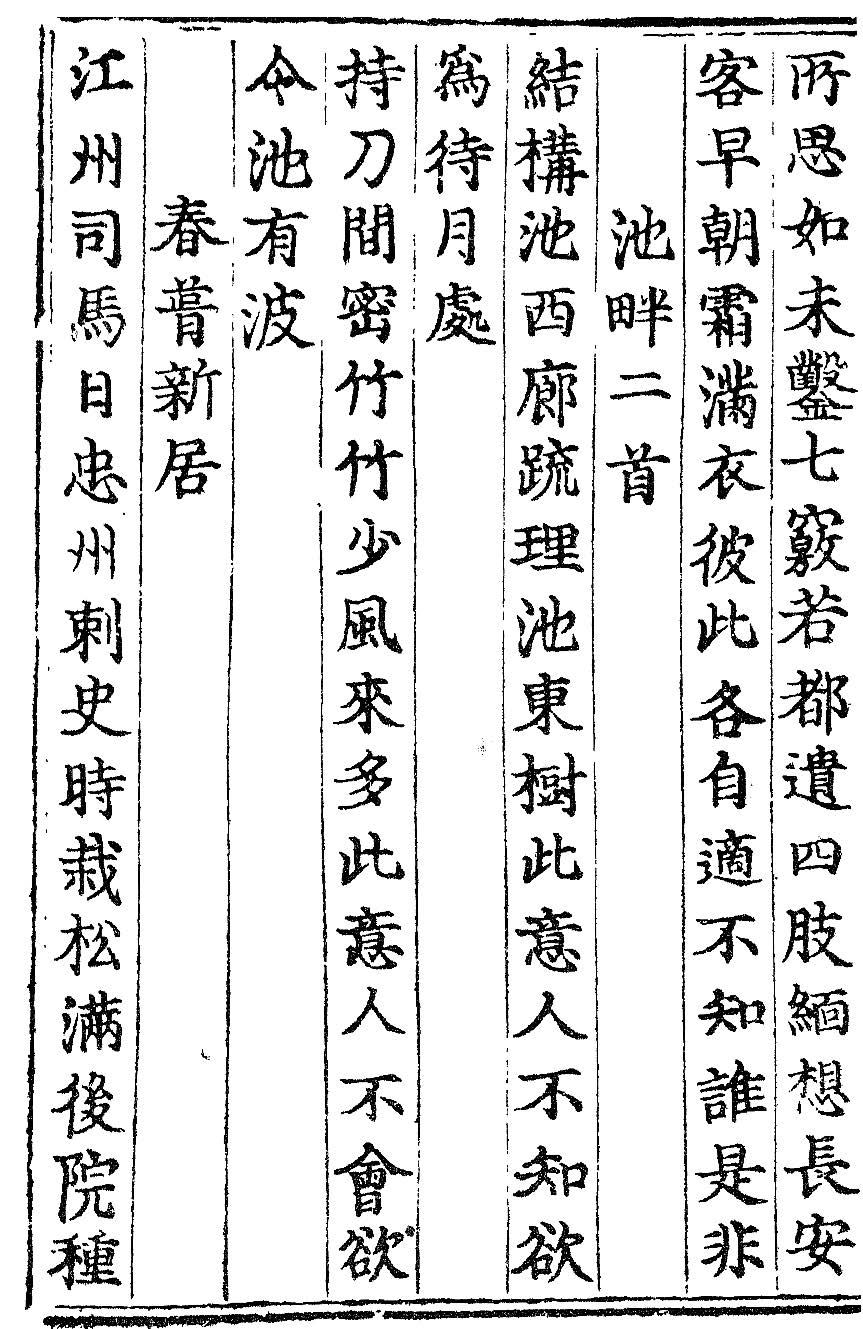 所思如未鑿七竅若都遺四肢緬想長安
客早朝霜滿衣彼此各自適不知誰是非
池畔二首
結構池西廊疏理池東樹此意人不知欲
爲待月處
持刀間密竹竹少風來多此意人不會欲
令池有波
春葺新居
江州司馬日忠州刺史時栽松滿後院種